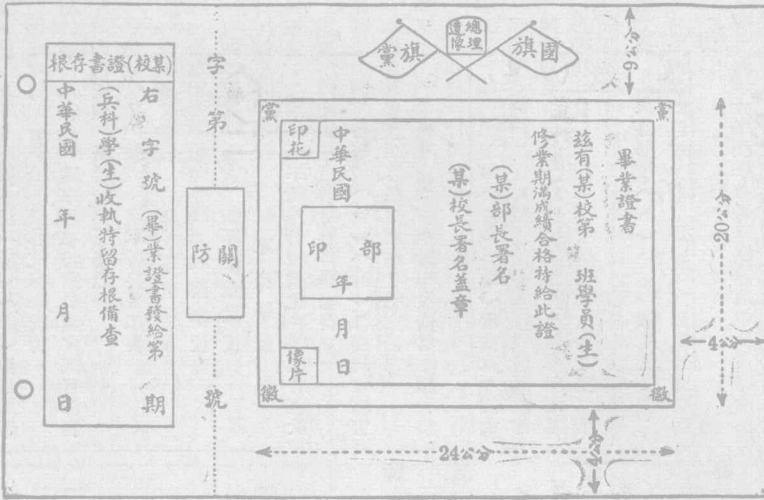 總理遺像
國旗
黨旗
6公分
黨
黨
畢業證書
兹有(某)校第 班學員(生)
修業期滿成績合格特給此證
(某)部長署名
(某)校長署名蓋章
中華民國 年 月 日
部印
印花
像片
徽
徽
20公分
4公分
24公分
字第 號
關防
(某校)證書存根
右 字 號 (畢)業證書發給第 期
(兵科)學(生)收執特留存根備查
中華民國 年 月 日